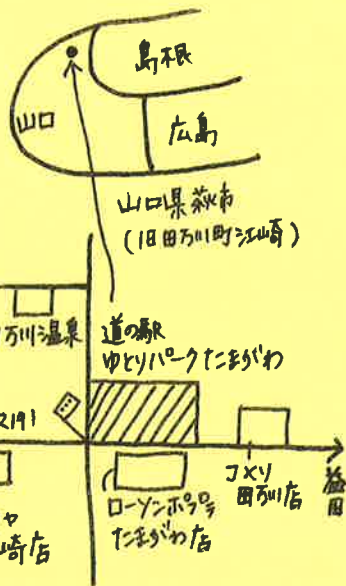 島根
山口
広島
山口県萩市
(旧田万川町江崎)
万川温泉
道の駅
ゆとりパークたまがわ
R191
コメリ
田万川店
益田
ローソンポプラ
たまがわ店
ヤ
崎店